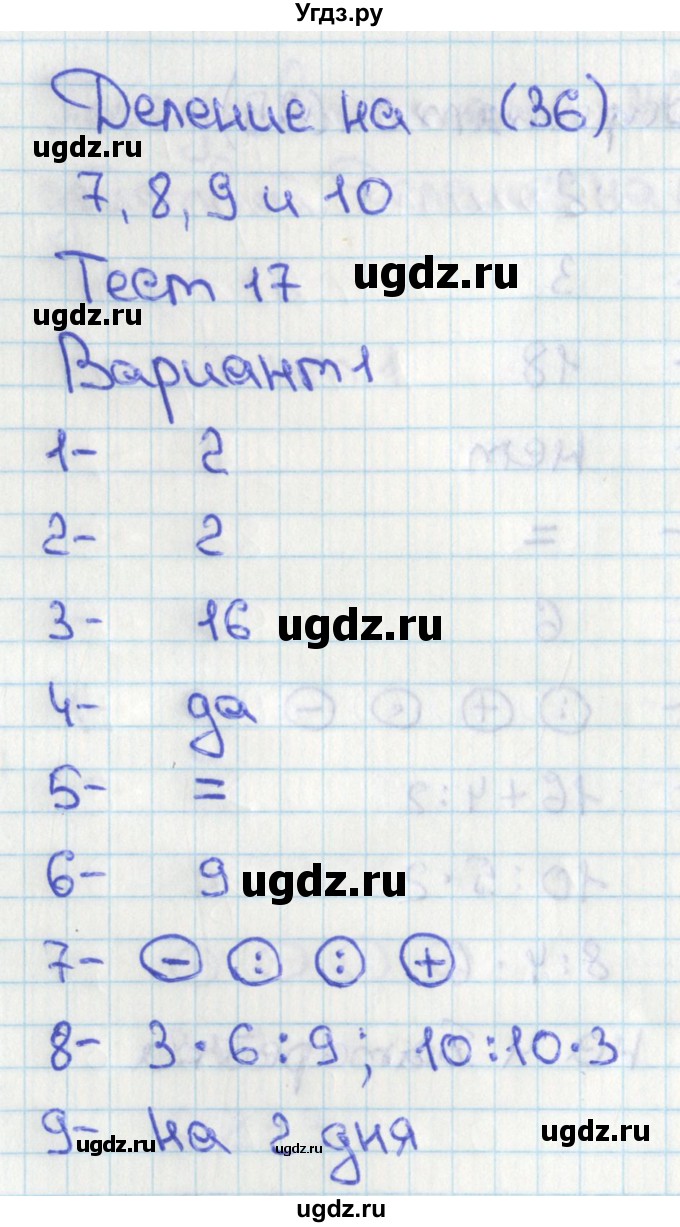 Угдз.ру
Деление на (36)
ugdz.ru
7, 8, 9 и 10
Тест 17 ugdz.ru
ugdz.ru
Вариант 1
1- 2
2- 2
3- 16 ugdz.ru
4- да
5- =
6- 9 ugdz.ru
7- - : : +
8- 3·6:9; 10:10·3
9- на 2 дня ugdz.ru
ugdz.ru ugdz.ru
ugdz.ru